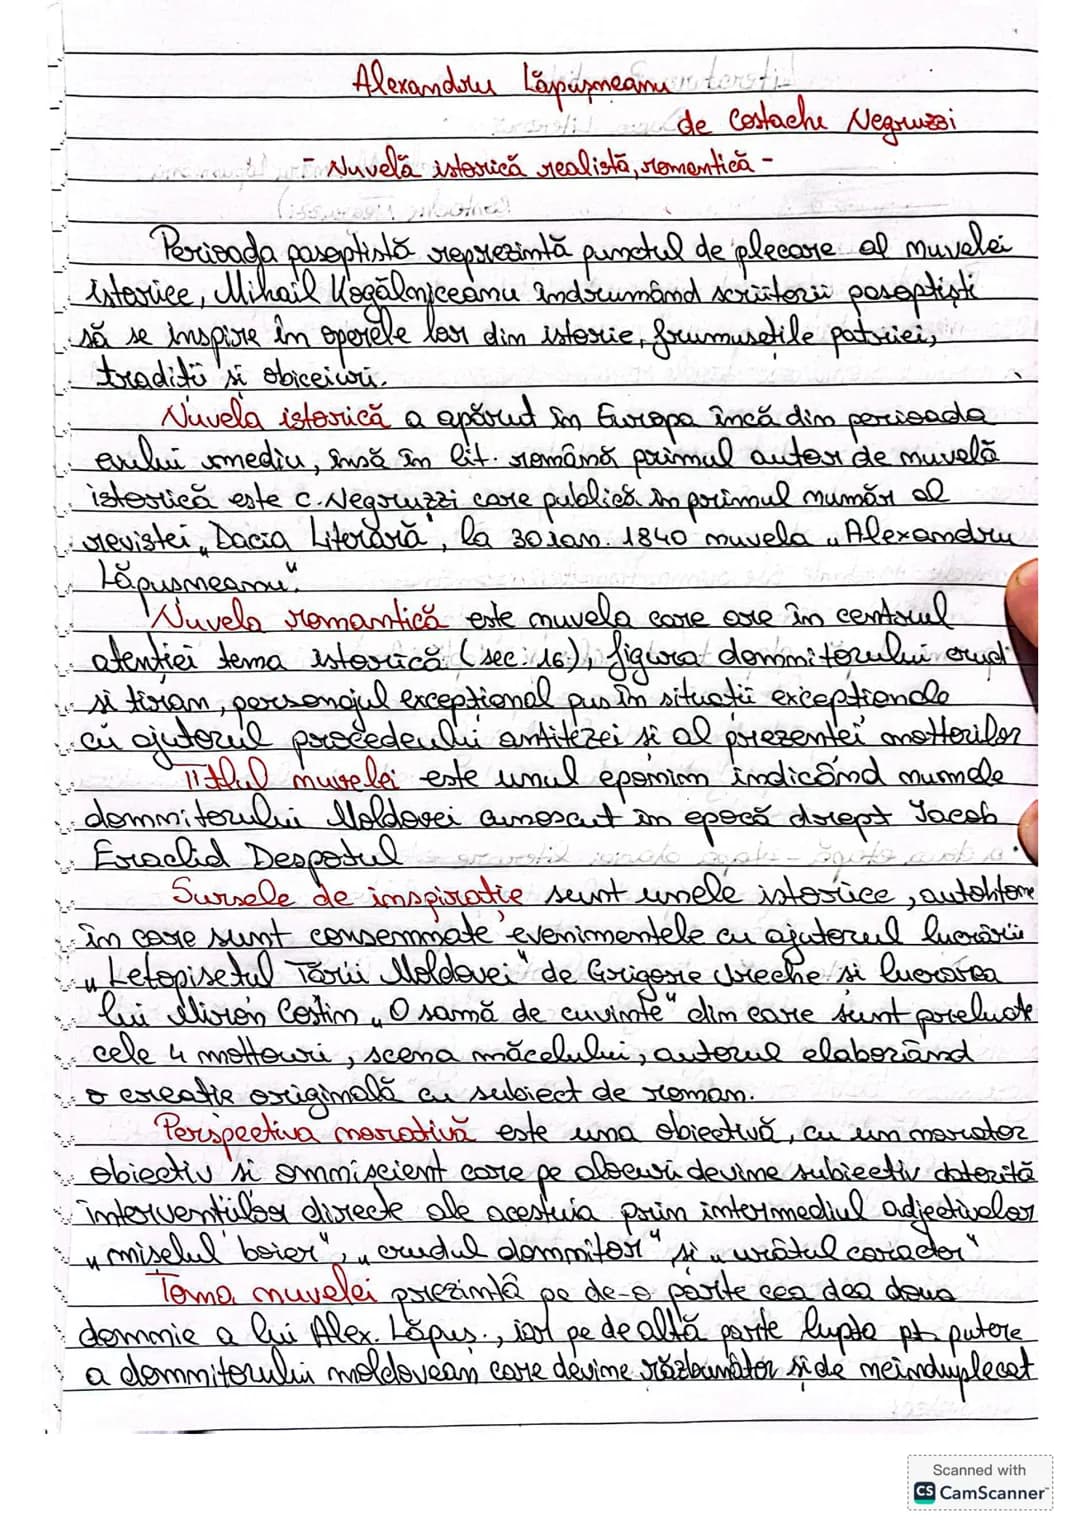 Alexandru Lăpușneanu
de Costache Negruzzi
- Nuvelă istorică realistă, romantică -
Perioada pașoptistă reprezintă punctul de plecare al nuvelei
istorice, Mihail Kogălniceanu îndrumând scriitorii pașoptiști
să se inspire în operele lor din istorie, frumusețile patriei,
tradiții și obiceiuri.
Nuvela istorică a apărut în Europa încă din perioada
evului mediu, însă în lit. română primul autor de nuvelă
istorică este C. Negruzzi care publică în primul număr al
revistei „Dacia Literară", la 30 ian. 1840 nuvela „Alexandru
Lăpușneanu".
Nuvela romantică este nuvela care are în centrul
atenției tema istorică (sec. 16), figura domnitorului crud
și tiran, personajul excepțional pus în situații excepționale
cu ajutorul procedeului antitezei și al prezenței mottorilor
Titlul nuvelei este unul eponim indicând numele
domnitorului Moldovei cunoscut în epocă drept Iacob
Eraclid Despotul
Sursele de inspirație sunt unele istorice, autohtone
în care sunt consemnate evenimentele cu ajutorul lucrării
„Letopisețul Țării Moldovei" de Grigore Ureche și lucrarea
lui Miron Costin „O samă de cuvinte" din care sunt preluate
cele 4 mottouri, scena măcelului, autorul elaborând
o creație originală cu subiect de roman.
Perspectiva narativă este una obiectivă, cu un narator
obiectiv și omniscient care pe alocuri devine subiectiv datorită
intervențiilor directe ale acestuia prin intermediul adjectivelor
„mișelul boier", „crudul domnitor" și „urâtul caracter"
Tema nuvelei prezintă pe de-o parte cea dea doua
domnie a lui Alex. Lăpuș., iar pe de altă parte lupta pt. putere
a domnitorului moldovean care devine răzbunător și de neînduplecat
Scanned with
CS CamScanner